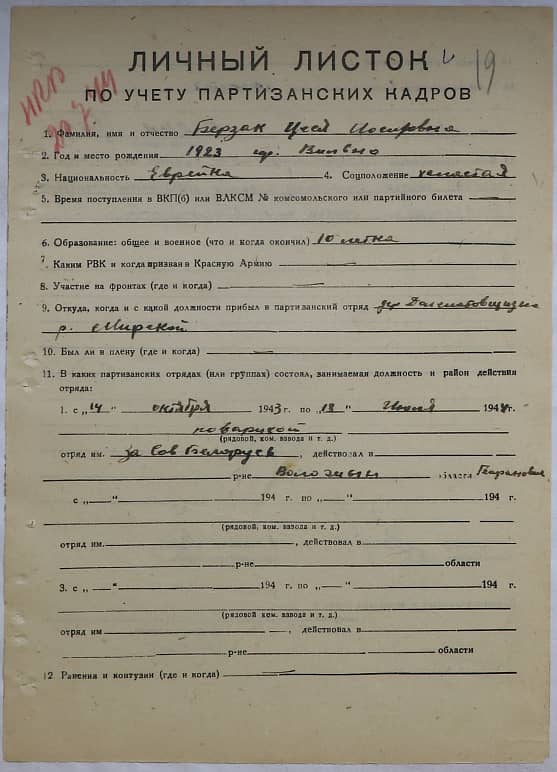 ЛИЧНЫЙ ЛИСТОК 19
ПО УЧЕТУ ПАРТИЗАНСКИХ КАДРОВ
1. Фамилия, имя и отчество Берзак Иосифовна
2. Год и место рождения 1923 гор. Вильно
3. Национальность Еврейка 4. Соцположение
5. Время поступления в ВКП(б) или ВЛКСМ № комсомольского или партийного билета —
6. Образование: общее и военное (что и когда окончил) 10 летка
7. Каким РВК и когда призван в Красную Армию —
8. Участие на фронтах (где и когда) —
9. Откуда, когда и с какой должности прибыл в партизанский отряд дер
р. Мирской
10. Был ли в плену (где и когда) —
11. В каких партизанских отрядах (или группах) состоял, занимаемая должность и район действия
отряда:
1. с „14" октября 1943 г. по „18" Июля 1944 г.
поварихой
(рядовой, ком. взвода и т. д.)
отряд им. за Сов Беларусь, действовал в
р-не Воложины области
с „—" 194 г. по „—" 194 г.
(рядовой, ком. взвода и т. д.)
отряд им. —, действовал в
р-не — области
3. с „—" 194 г. по „—" 194 г.
(рядовой, ком. взвода и т. д.)
отряд им —, действовал в
р-не — области
12 Ранения и контузии (где и когда) —